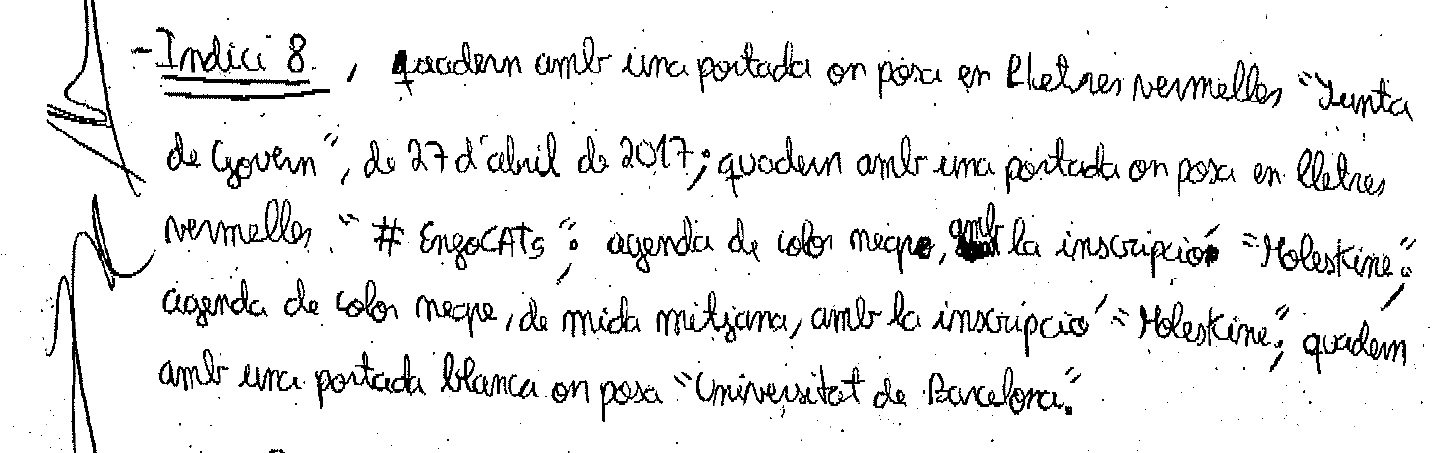 - Indici 8. , quadern amb una portada on posa en lletres vermelles "Junta
de Govern", de 27 d'abril de 2017; quadern amb una portada on posa en lletres
vermelles "# EngoCATs"; agenda de color negre, amb la inscripció "Moleskine";
agenda de color negre, de mida mitjana, amb la inscripció "Moleskine"; quadern
amb una portada blanca on posa "Universitat de Barcelona".